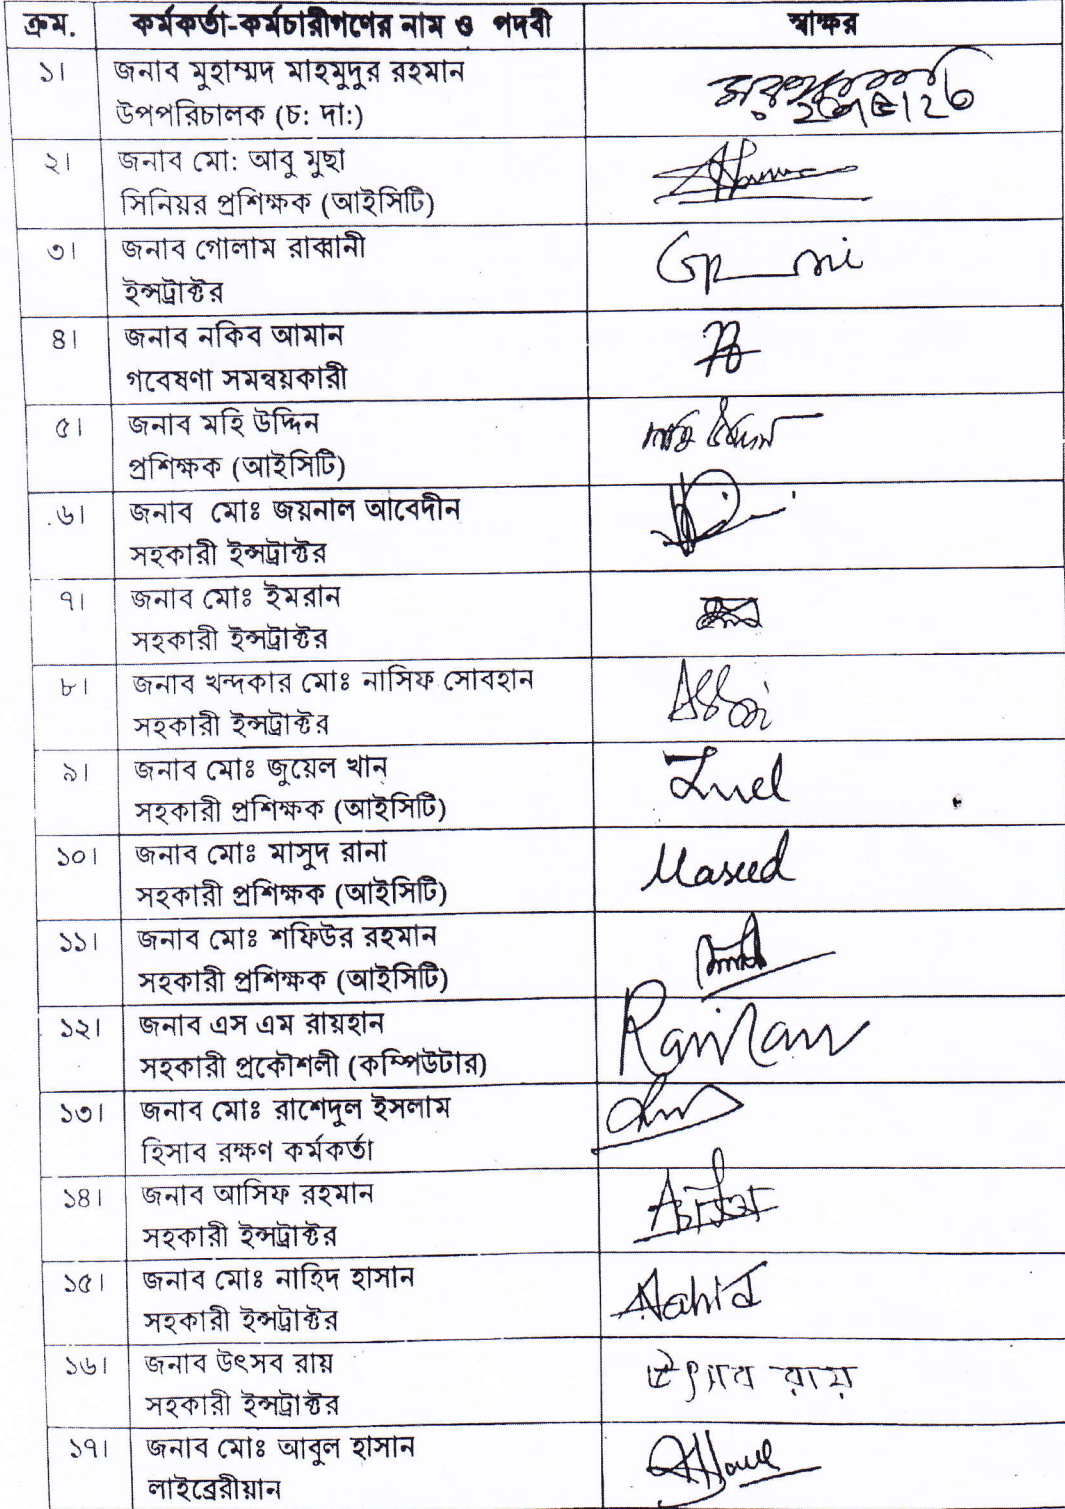 ক্রম. কর্মকর্তা-কর্মচারীগণের নাম ও পদবী স্বাক্ষর
১। জনাব মুহাম্মদ মাহমুদুর রহমান
উপপরিচালক (চ: দা:)
২। জনাব মো: আবু মুছা
সিনিয়র প্রশিক্ষক (আইসিটি)
৩। জনাব গোলাম রাব্বানী
ইন্সট্রাক্টর
৪। জনাব নকিব আমান
গবেষণা সমন্বয়কারী
৫। জনাব মহি উদ্দিন
প্রশিক্ষক (আইসিটি)
.৬। জনাব মোঃ জয়নাল আবেদীন
সহকারী ইন্সট্রাক্টর
৭। জনাব মোঃ ইমরান
সহকারী ইন্সট্রাক্টর
৮। জনাব খন্দকার মোঃ নাসিফ সোবহান
সহকারী ইন্সট্রাক্টর
৯। জনাব মোঃ জুয়েল খান
সহকারী প্রশিক্ষক (আইসিটি)
১০। জনাব মোঃ মাসুদ রানা Masud
সহকারী প্রশিক্ষক (আইসিটি)
১১। জনাব মোঃ শফিউর রহমান
সহকারী প্রশিক্ষক (আইসিটি)
১২। জনাব এস এম রায়হান
সহকারী প্রকৌশলী (কম্পিউটার)
১৩। জনাব মোঃ রাশেদুল ইসলাম
হিসাব রক্ষণ কর্মকর্তা
১৪। জনাব আসিফ রহমান
সহকারী ইন্সট্রাক্টর
১৫। জনাব মোঃ নাহিদ হাসান Nahid
সহকারী ইন্সট্রাক্টর
১৬। জনাব উৎসব রায় উৎসব রায়
সহকারী ইন্সট্রাক্টর
১৭। জনাব মোঃ আবুল হাসান
লাইব্রেরীয়ান